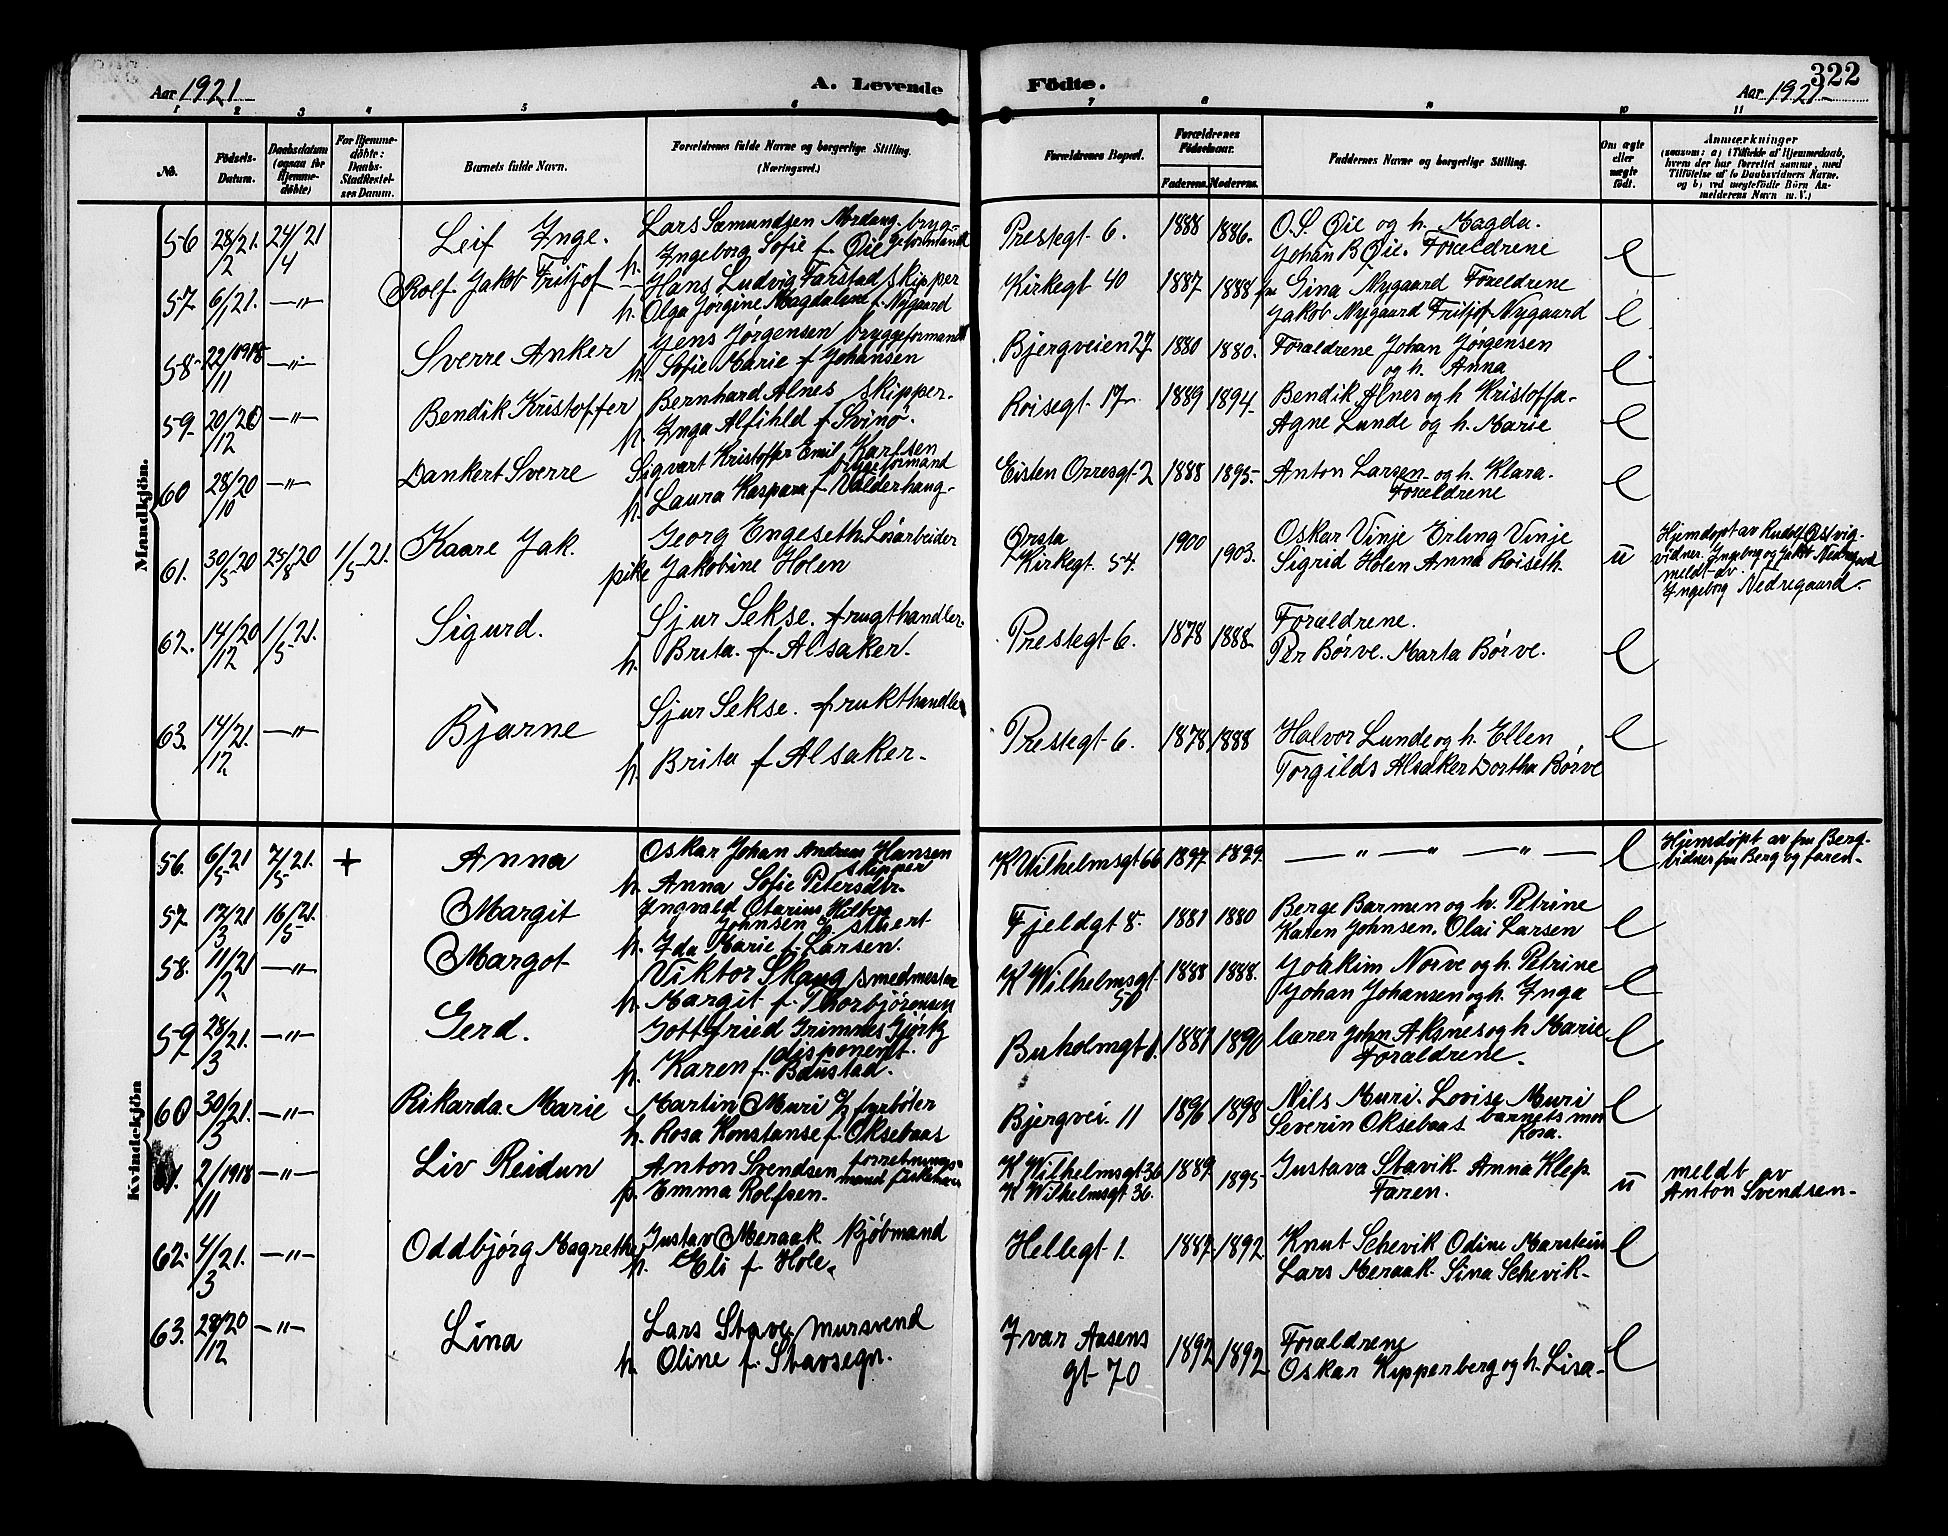 Aar 1921
A. Levende Födte.
Aar 1921
322
1 2 3 4 5 6 7 8 9 10 11
No.
Födsels-Datum.
Daabsdatum (ogsaa for Hjemme-döbte)
For Hjemme-döbte: Daabs-Stadfæstel-ses Datum.
Barnets fulde Navn.
Forældrenes fulde Navne og borgerlige Stilling.
(Næringsvei.)
Forældrenes Bopæl.
Forældrenes Födselsaar.
Faderens. Moderens.
Faddernes Navne og borgerlige Stilling.
Om ægte eller uægte födt.
Anmærkninger
(saasom: a) i Tilfælde af Hjemmedaab,
hvem der har forrettet samme, med
Tilföielse af to Daabsvidners Navne,
og b) ved uægtefödte Börn An-
melderens Navn m. V.)
Mandkjön.
56 28/2 21. 24/4 21 Leif Inge. Lars Sæmundsen Mordang bryg-
geformand
h. Ingeborg Sofie f. Øie
Prestegt 6. 1888 1886. O.S. Øie og h. Magda.
Johan B Øie. Forældrene e
57 6/1 21. —"— Rolf Jakob Fritjof Hans Ludvig Farstad skipper
h. Olga Jørgine Magdalene f. Nygaard
Kirkegt 40 1887 1888 fru Gina Nygaard Forældrene
Jakob Nygaard Fritjof Nygaard e
58 22/11 1918 —"— Sverre Anker Jens Jørgensen bryggeformand
h. Sofie Marie f Johansen
Bjergveien 27 1880 1880. Forældrene Johan Jørgensen
og h. Anna e
59. 20/12 20 —"— Bendik Kristoffer Bernhard Alnes skipper.
h. Inga Alfihld f Svinø.
Roisegt. 17 1889 1894 Bendik Alnes og h Kristoffa-
Agne Lunde og h. Marie e
60 28/10 20 —"— Dankert Sverre Sigvart Kristoffer Emil Karlsen
bryggeformand
h. Laura Kaspara f Valderhaug-
Eisten Orresgt 2 1888 1895- Anton Larsen og h. Klara-
Forældrene e
61. 30/5 20 25/8 20 1/5 21. Kaare Jak. Georg Engeseth Løsarbeider
pike Jakobine Holen
Ørsta
Kirkegt. 54. 1900 1903. Oskar Vinje Erling Vinje
Sigrid Holen Anna Roiseth. u
Hjemdøpt av Rudolf Østvig-
vidner. Ingeborg og Jakob Nedregaard
meldt av
Ingeborg Nedregaard-
62. 14/12 20 1/5 21. Sigurd. Sjur Sekse. frugthandler
h. Brita. f Alsaker.
Prestegt 6. 1878 1888 Forældrene.
Per Børve. Marta Børve. e
63. 14/12 21. —"— Bjarne Sjur Sekse. frukthandler
h. Brita f Alsaker-
Prestegt 6. 1878 1888 Halvor Lunde og h. Ellen
Torgilds Alsaker Dortha Børve e
Kvindekjön
56. 6/5 21 7/5 21. + Anna Oskar Johan Andreas Hansen
skipper
h. Anna Sofie Petersdtr.
K Wilhelmsgt 66 1897 1899. — " — " — " — e
Hjemdøpt av fru Berg-
vidner fru Berg og faren-
57 12/3 21 16/5 21. Margit Ingvald Otarius Hilbert
Johnsen stuert
h. Ida Marie f. Larsen.
Fjeldgt 8. 1881 1880 Berge Barmen og h. Petrine
Karen Johnsen. Olai Larsen e
58. 11/2 21 —"— Margot Viktor Skaug smedmester
h. Margit f. Thorbjørensen
K Wilhelmsgt.
50 1888 1888. Joakim Norve og h. Petrine
Johan Johansen og h. Inga e
59 28/3 21. —"— Gerd. Gottfried Grimnes
disponent.
h. Karen f Baustad.
Buholmgt 1. 1881 1890 lærer John Aksnes og h. Marie
Forældrene- e
60 30/3 21. —"— Rikarda Marie Martin Muri fyrbøter
h. Rosa Konstanse f. Oksebaas
Bjergvei. 11 1896 1898 Nils Muri. Lovise Muri
Severin Oksebaas. barnets mor
Rosa. e
61. 2/11 1918 —"— Liv Reidun Anton Svendsen forretnings-
mand
p. Emma Rolfsen.
K Wilhelmsgt 36
K Wilhelmsgt 36. 1889 1895- Gustava Stavik Anna Klep
Faren. u
meldt av
Anton Svendsen-
62- 4/3 21. —"— Oddbjørg Magrethe Gustav Meraak kjøbmand
h. Eli f Hole.
Hellegt 1. 1887 1892 Knut Schevik Odine Marstein
Lars Meraak. Sina Schevik- e
63. 28/12 20 —"— Lina Lars Stave mursvend
h. Oline f. Stavsegn.
Ivar Aasens
gt 70 1892 1892 Forældrene
Oskar Kipperberg og h. Lisa- e